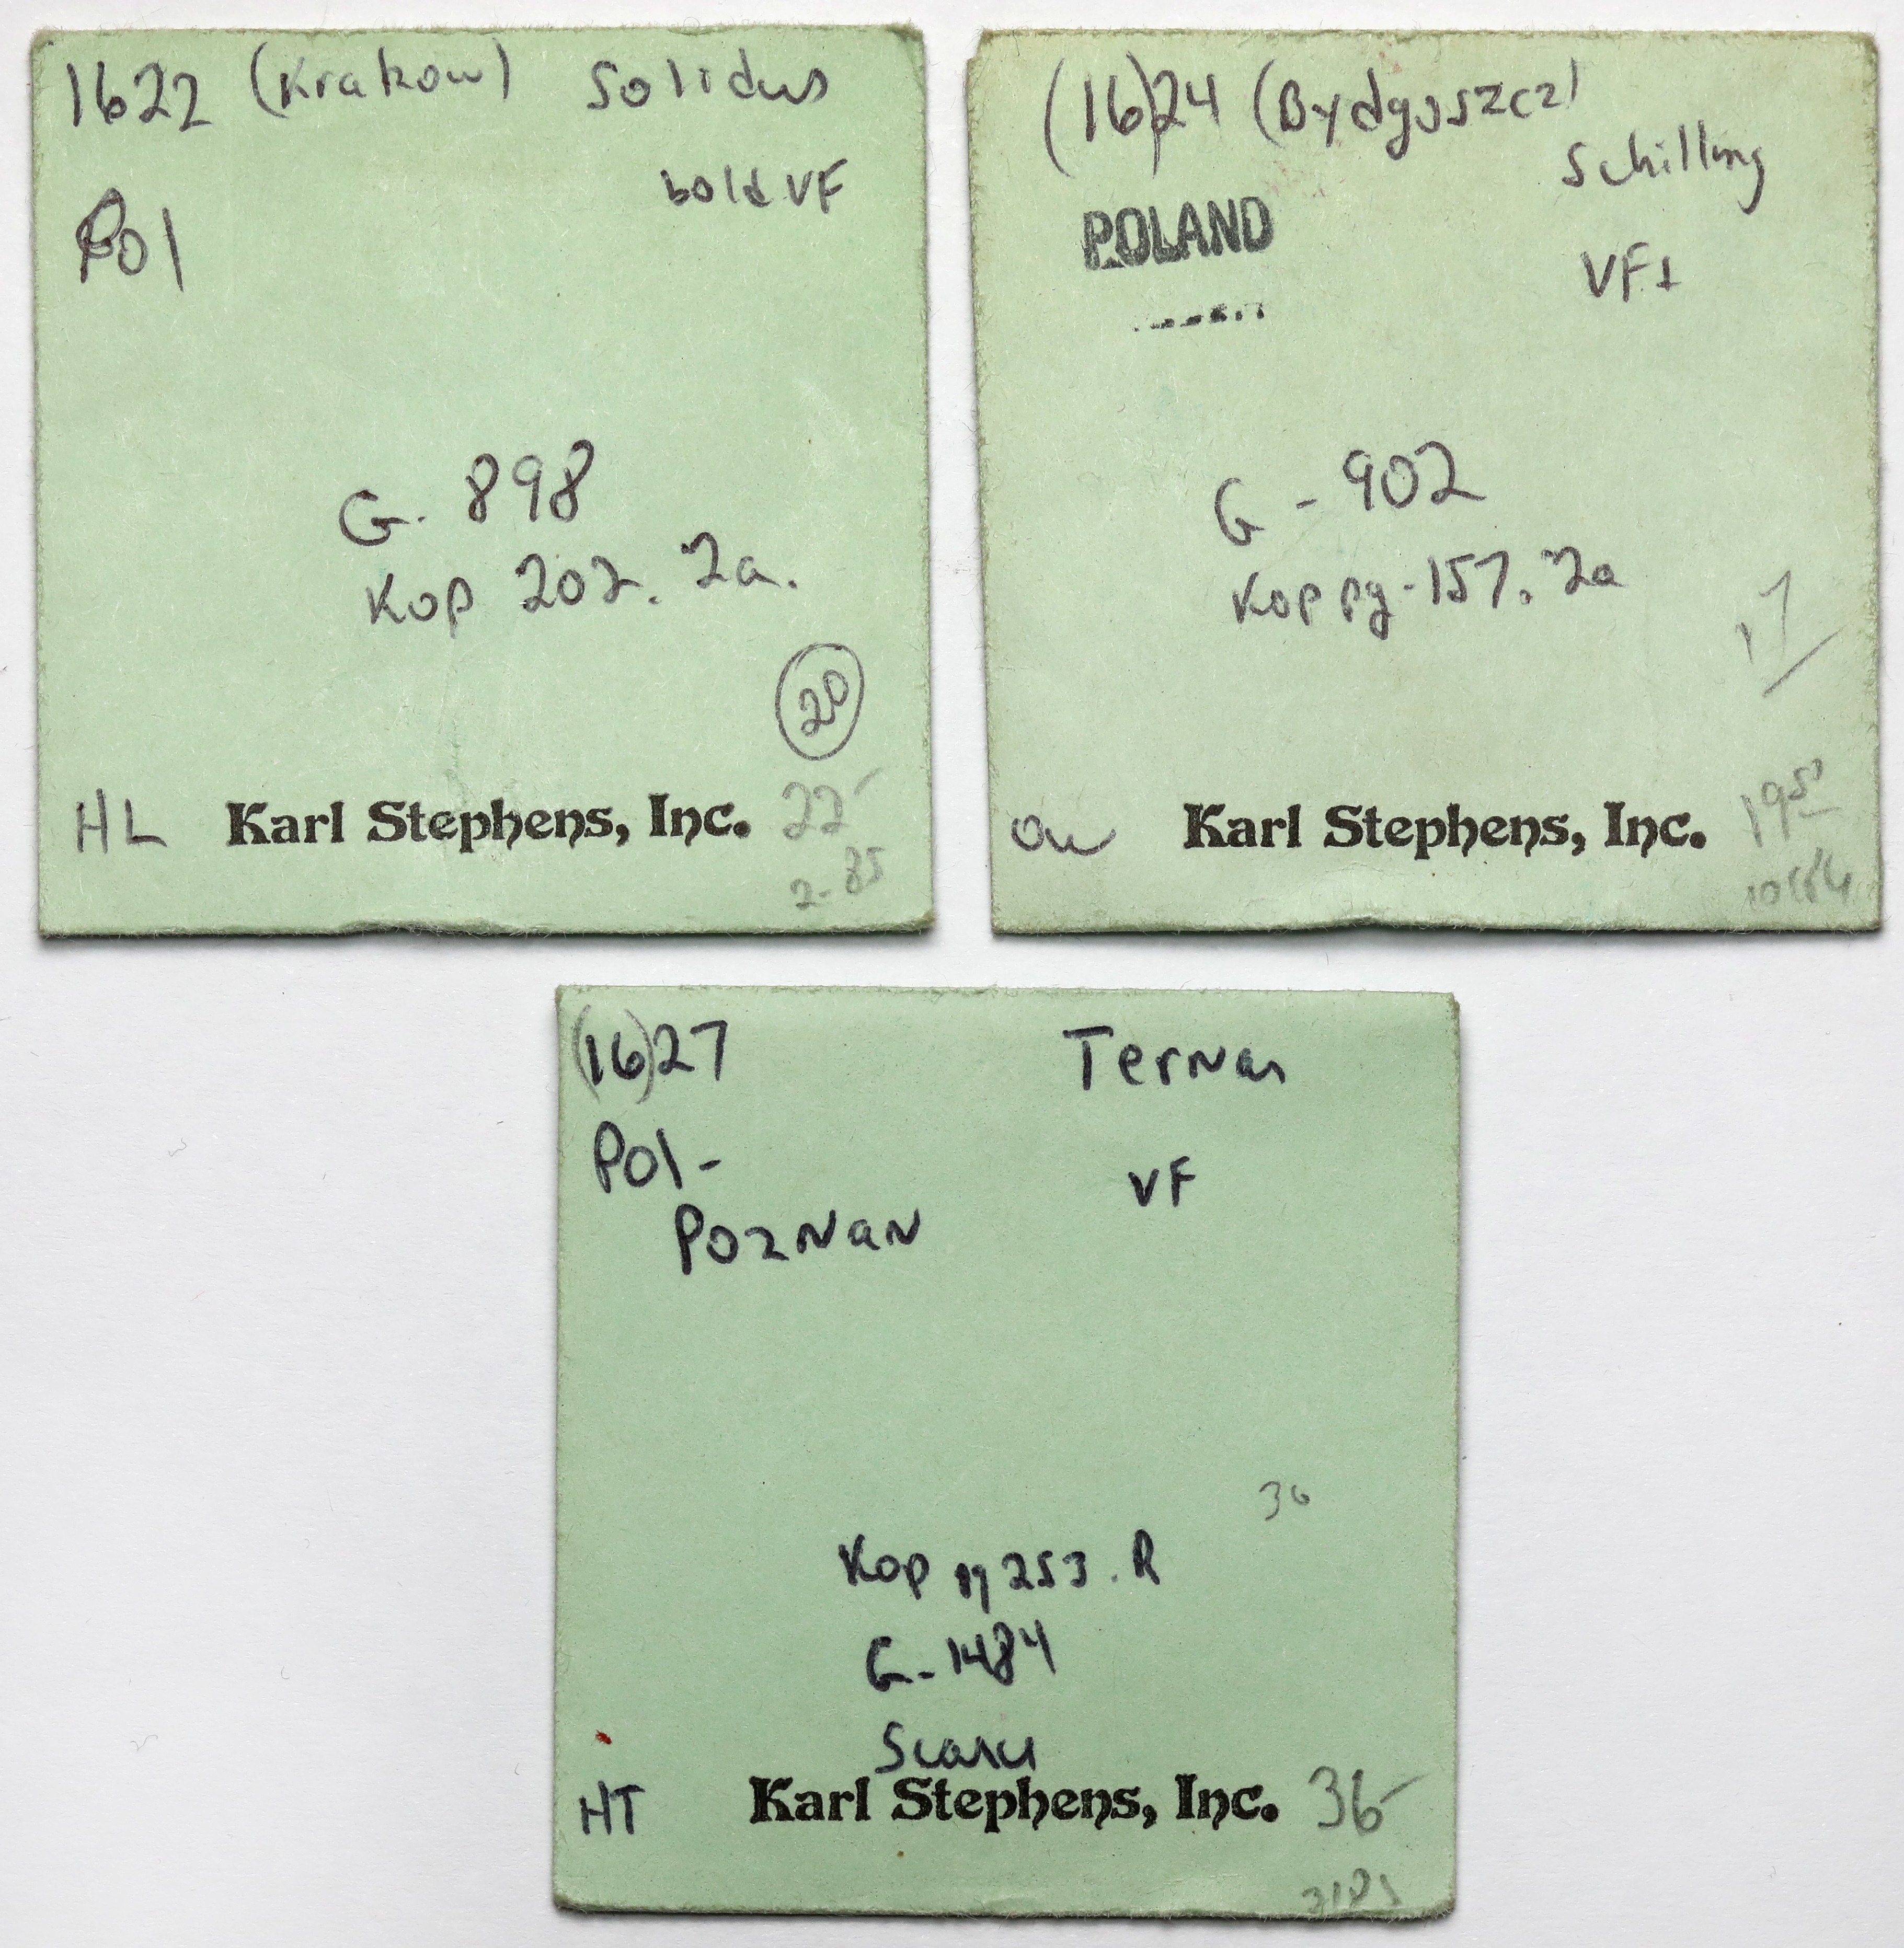 1622 (Krakow) Solidus
bold VF
Pol
G. 898
Kop 202. 2a.
20
HL Karl Stephens, Inc. 22-
2-85
(16)24 (Bydgoszcz)
Schilling
POLAND
VF+
G - 902
Kop pg - 157. 2a
17
Karl Stephens, Inc. 19 50
(16)27 Ternar
Pol -
VF
Poznan
36
Kop pg 253. R
G - 1484
Scarce
HT Karl Stephens, Inc. 36-